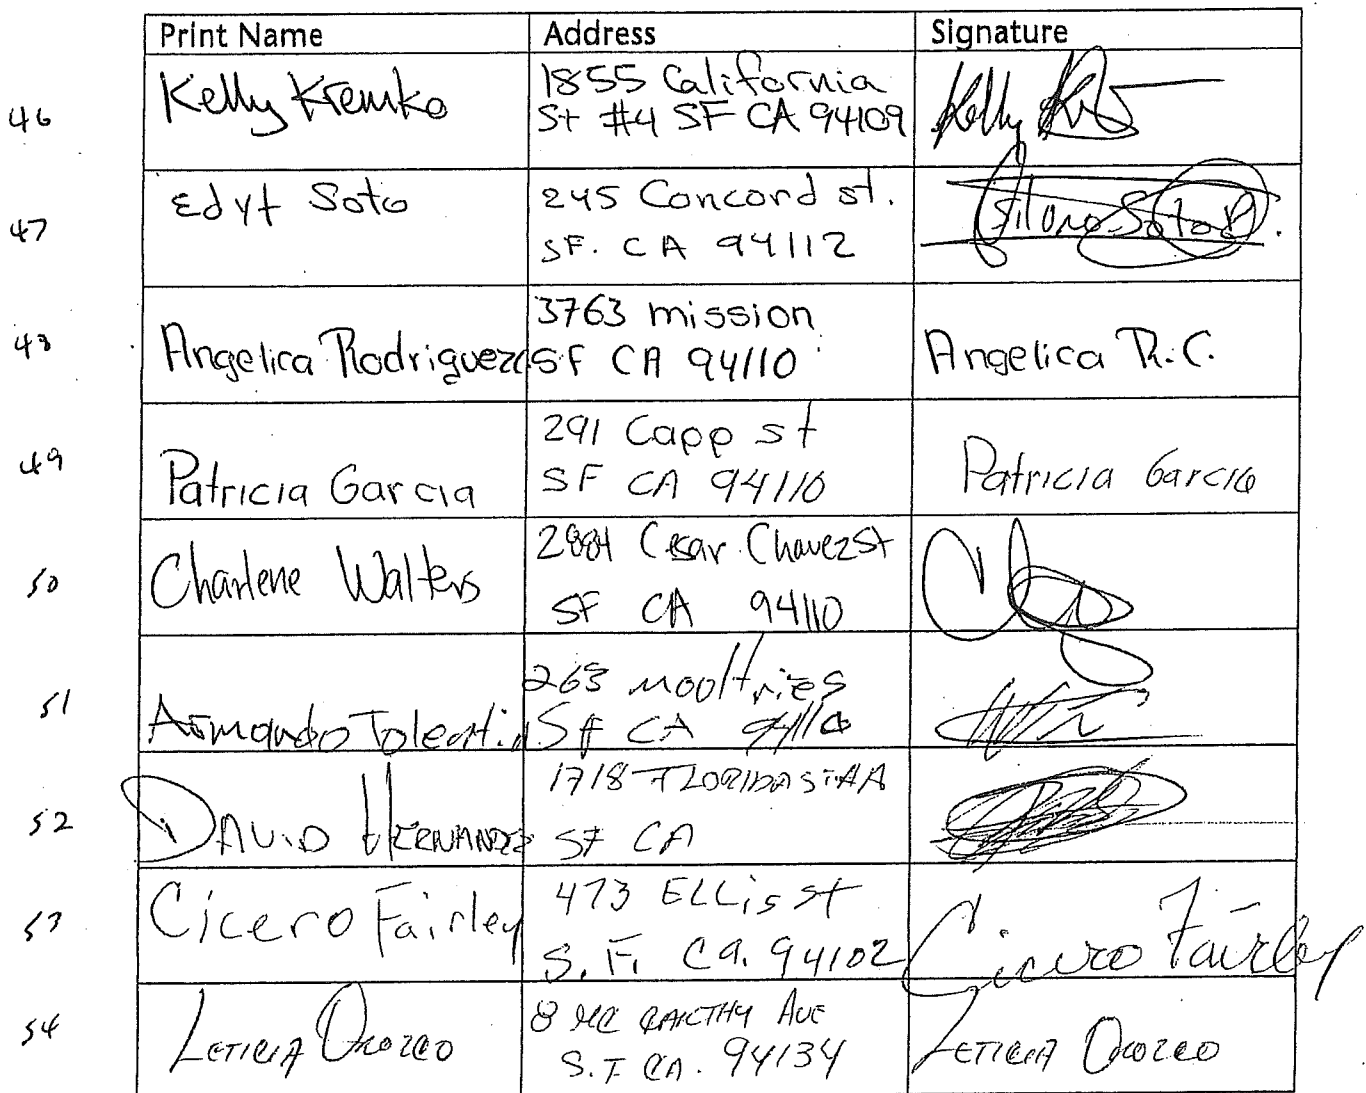 Print Name Address Signature
46 Kelly Kremko 1855 California St #4 SF CA 94109 Kelly
47 Edyt Soto 245 Concord st. SF. CA 94112 Soto
48 Angelica Rodriguez 3763 mission SF CA 94110 Angelica R.C.
49 Patricia Garcia 291 Capp st SF CA 94110 Patricia Garcia
50 Charlene Walters Cesar Chavez St SF CA 94110
51 Armando 263 SF CA
52 DAVID HERNANDEZ 1718 FLORIDA ST SF CA
53 Cicero Fairley 473 ELLis st S.F. Ca. 94102 Cicero Fairley
54 LETICIA OROZCO 8 MC CARTHY AVE S.F CA. 94134 LETICIA OROZCO